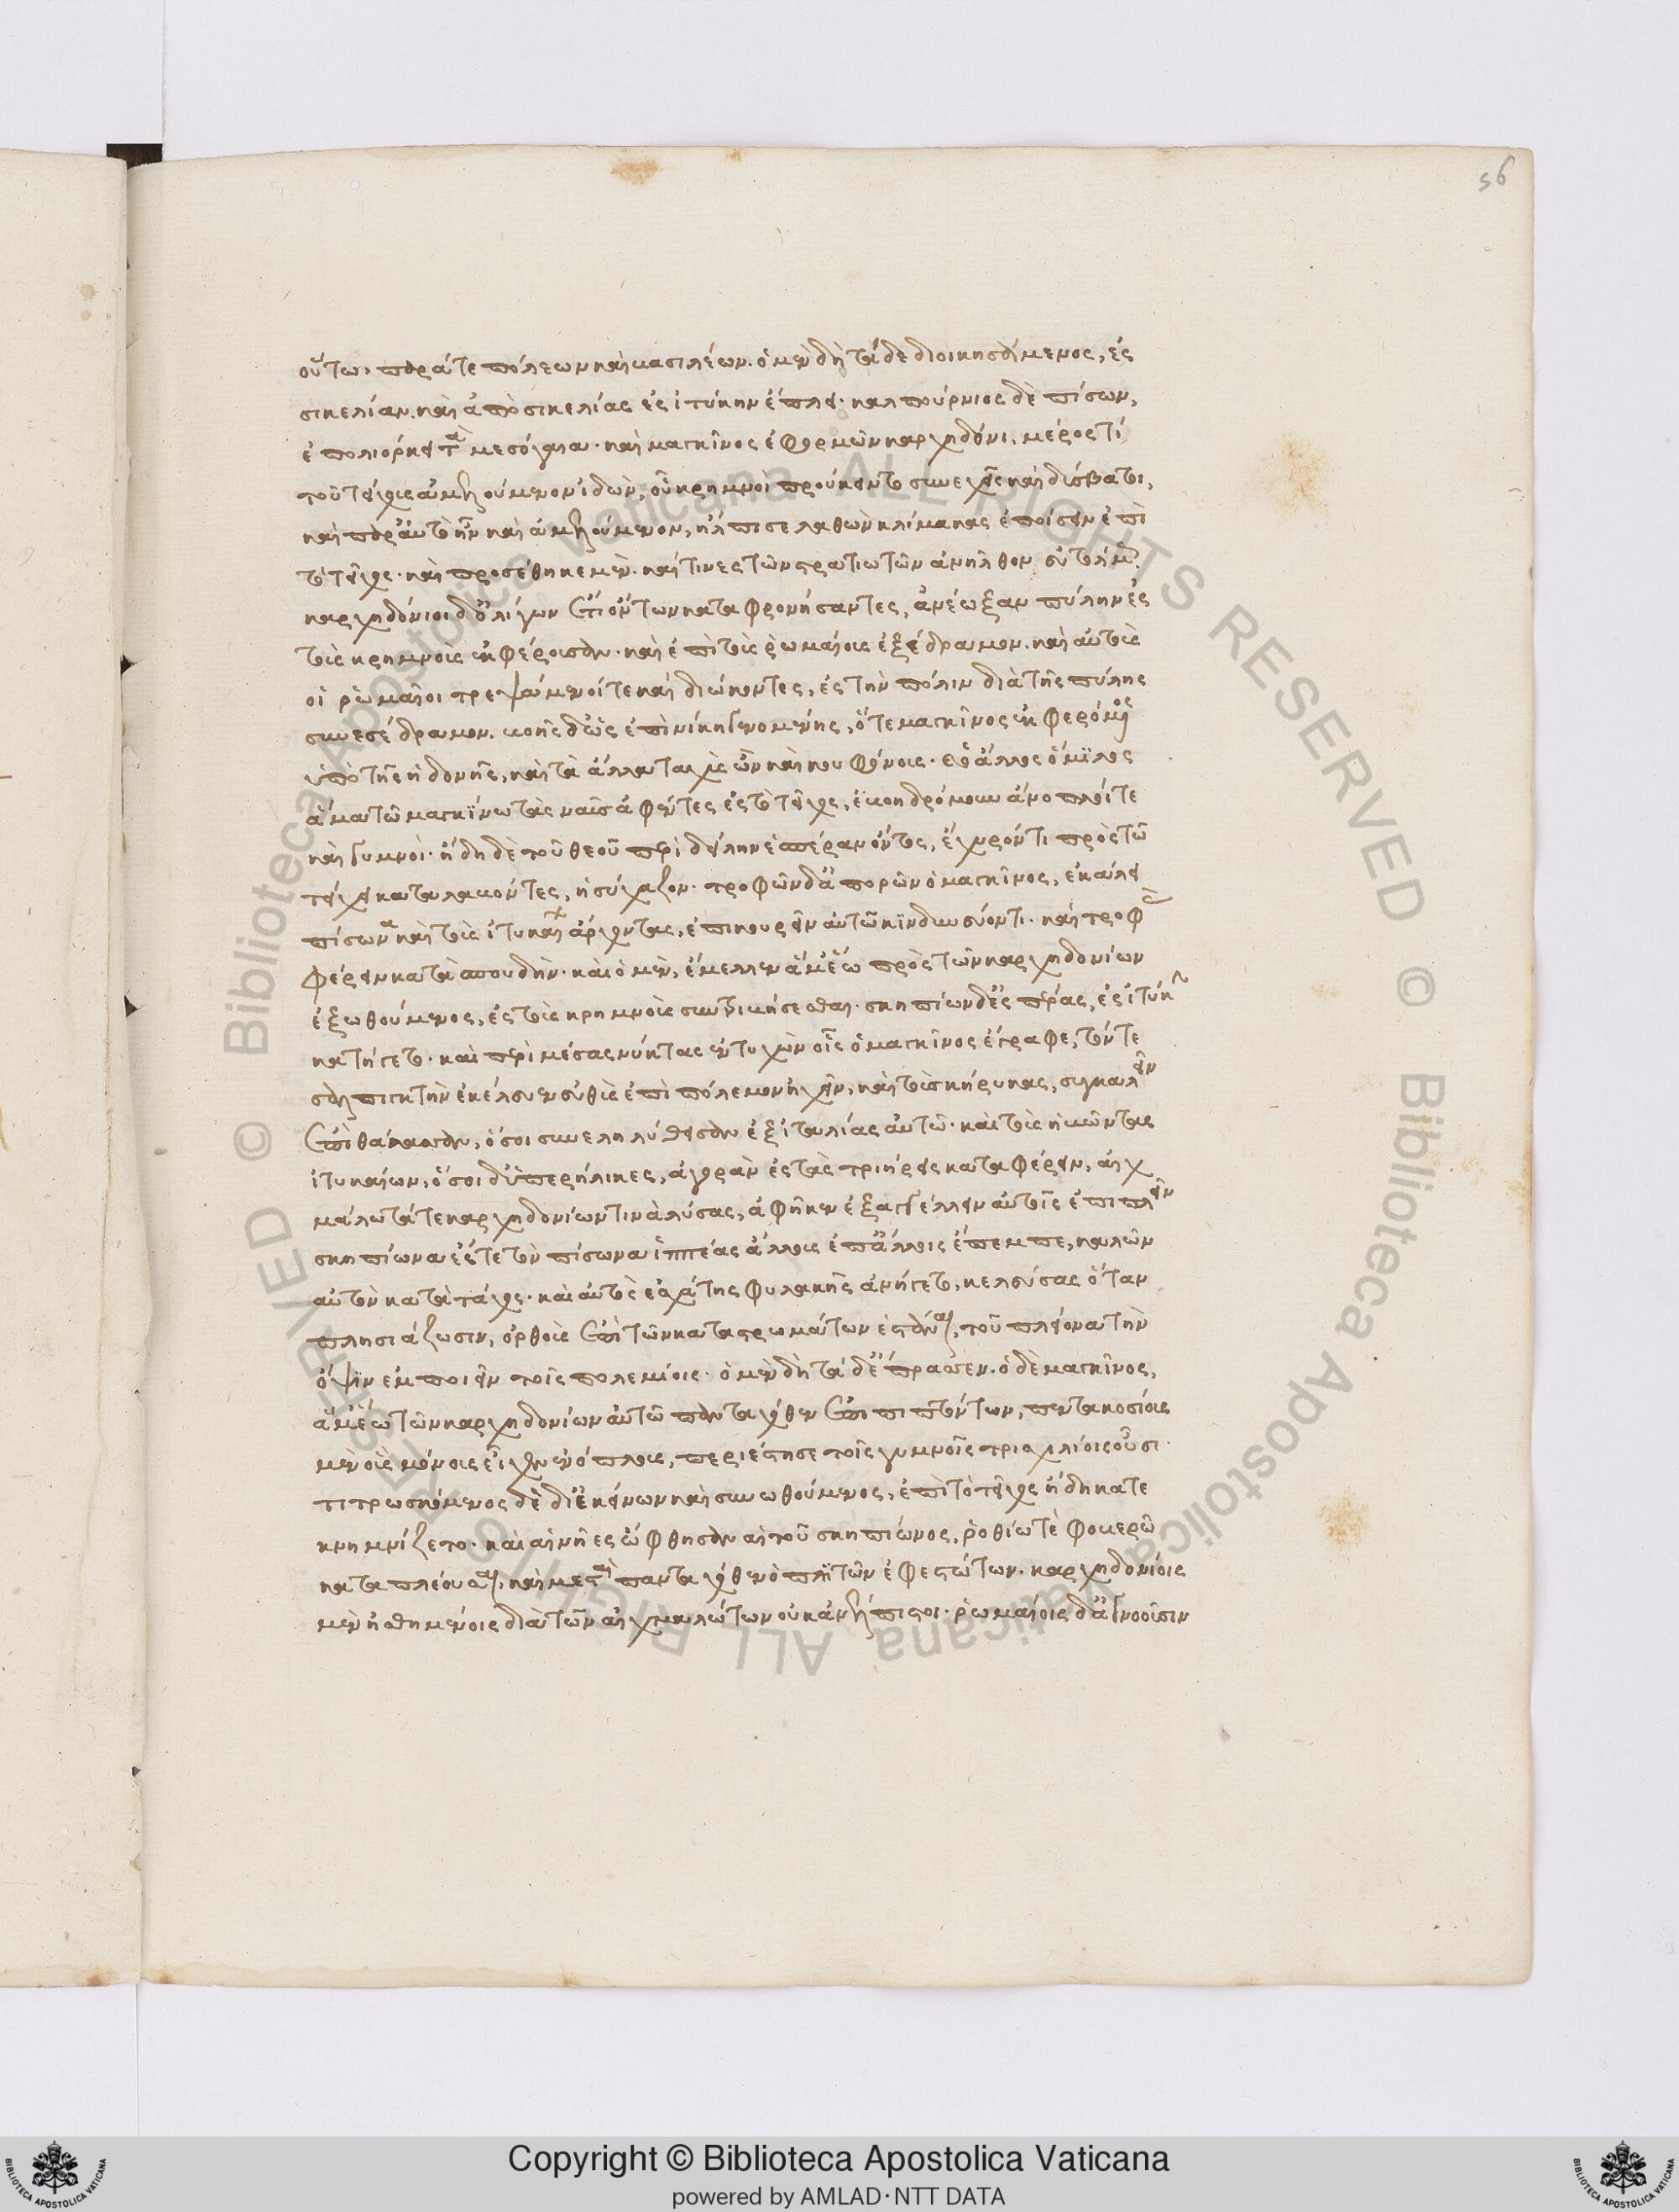 οὕτω, παρά τε πόλεων καὶ βασιλέων. ὁ μὲν δὴ τάδε διοικησάμενος, ἐς
σικελίαν. καὶ ἀπὸ σικελίας ἐς ἰτύκην ἔπλει. καλπούρνιος δὲ πίσων,
ἐπολιόρκει τὰ μεσόγαια. καὶ μαγκῖνος ἐφορμῶν καρχηδόνι. μέρος τί
τοῦ τείχους ἀμελούμενον ἰδὼν, οὗ κρημνοὶ προύκειντο συνεχεῖς καὶ δύσβατοι,
καὶ παρ' αὐτὸ ἦν καὶ ἀμελούμενον, ἤλπισε λαθὼν κλίμακας ἐποίσειν ἐπὶ
τὸ τεῖχος. καὶ προσέθηκε μὲν. καί τινες τῶν στρατιωτῶν ἀνῆλθον εὐτόλμως
καρχηδόνιοι δ' ὀλίγων ἔτι ὄντων καταφρονήσαντες, ἀνέωξαν πύλην ἐς
τοὺς κρημνοὺς ἐκφέρουσαν. καὶ ἐπὶ τοὺς ῥωμαίους ἐξέδραμον. καὶ αὐτοὺς
οἱ ῥωμαῖοι τρεψάμενοί τε καὶ διώκοντες, ἐς τὴν πόλιν διὰ τῆς πύλης
συνεσέδραμον. βοῆς δ' ὡς ἐπὶ νίκη γενομένης, ὅ τε μαγκῖνος ἐκφερόμενος
ὑπὸ τῆς ἡδονῆς, καὶ τὰ ἄλλα ταχὺς ὢν καὶ κουφόνους. ὁ ἄλλος ὅμϊλος
ἅμα τῶ μαγκΐνω τὰς ναῦς ἀφέντες ἐς τὸ τεῖχος, ἐβοηδρόμουν ἄνοπλοί τε
καὶ γυμνοί. ἤδη δὲ τοῦ θεοῦ περὶ δείλην ἑσπέραν ὄντος, ἐχυρόν τι πρὸς τῶ
τείχει καταλαβόντες, ἡσύχαζον. τροφῶν δ' ἀπορῶν ὁ μαγκῖνος, ἐκάλει
πίσωνα καὶ τοὺς ἰτυκαίων ἄρχοντας, ἐπικουρεῖν αὐτῶ κϊνδυνεύοντι. καὶ τροφὰς
φέρειν κατὰ σπουδὴν. καὶ ὁ μὲν, ἔμελλεν ἅμ' ἕω πρὸς τῶν καρχηδονίων
ἐξωθούμενος, ἐς τοὺς κρημνοὺς συντριβήσεσθαι. σκηπίων δ' ἑσπέρας, ἐς ἰτύκην
κατήγετο. καὶ περὶ μέσας νύκτας ἐντυχὼν οἷς ὁ μαγκῖνος ἔγραφε, τόν τε
σαλπιγκτὴν ἐκέλευεν εὐθὺς ἐπὶ πόλεμον ἠχεῖν, καὶ τοὺς κήρυκας, συγκαλεῖν
ἐπὶ θάλασσαν, ὅσοι συνεληλύθεισαν ἐξ ἰταλίας αὐτῶ. καὶ τοὺς ἡβῶντας
ἰτυκαίων, ὅσοι δ' ὑπερήλικες, ἀγορὰν ἐς τὰς τριήρεις καταφέρειν, αἰχ
μάλωτά τε καρχηδονίων τινὰ λύσας, ἀφῆκεν ἐξαγγέλλειν αὐτοῖς ἐπιπλεῖν
σκηπίωνα ἔς τε τὸν πίσωνα ἱππέας ἄλλους ἐπ' ἄλλοις ἔπεμπε, καλῶν
αὐτὸν κατὰ τάχος. καὶ αὐτὸς ἐσχάτης φυλακῆς ἀνήγετο, κελεύσας ὅταν
πλησιάζωσιν, ὀρθοὺς ἐπὶ τῶν καταστρωμάτων ἑστάναι, τοῦ πλείονα τὴν
ὄψιν ἐμποιεῖν τοῖς πολεμίοις. ὁ μὲν δὴ τάδ' ἔπρασσεν. ὁ δὲ μαγκῖνος,
ἅμ' ἕω τῶν καρχηδονίων αὐτῶ πανταχόθεν ἐπιπιπτόντων, πεντακοσίους
μὲν οὓς μόνους εἶχεν ἐνόπλους, περιέστησε τοῖς γυμνοῖς τρισχιλίοις οὖσι.
τιτρωσκόμενος δὲ δι' ἐκείνων καὶ συνωθούμενος, ἐπὶ τὸ τεῖχος ἤδη κατε
κρημνίζετο. καὶ αἱ νῆες ὤφθησαν αἱ τοῦ σκηπίωνος, ῥοθίω τὲ φοβερῶ
καταπλέουσαι, καὶ μεσταὶ πανταχόθεν ὁπλϊτῶν ἐφεστώτων. καρχηδονίοις
μὲν ᾐσθημένοις διὰ τῶν αἰχμαλώτων οὐκ ἀνέλπιστοι. ῥωμαίοις δ' ἀγνοοῦσιν